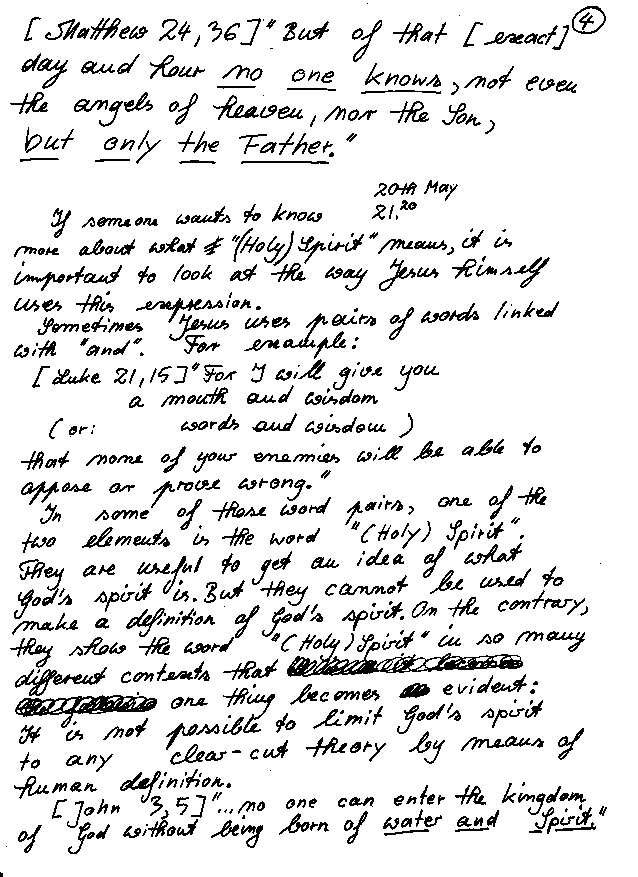 4
[Matthew 24,36] "But of that [exact]
day and hour no one knows, not even
the angels of heaven, nor the Son,
but only the Father."
20th May
21.20
If someone wants to know
more about what "(Holy) Spirit" means, it is
important to look at the way Jesus himself
uses this expression.
Sometimes Jesus uses pairs of words linked
with "and". For example:
[Luke 21,15] "For I will give you
a mouth and wisdom
(or: words and wisdom)
that none of your enemies will be able to
oppose or prove wrong."
In some of those word pairs, one of the
two elements is the word "(Holy) Spirit".
They are useful to get an idea of what
God's spirit is. But they cannot be used to
make a definition of God's spirit. On the contrary,
they show the word "(Holy) Spirit" in so many
different contexts that
one thing becomes evident:
It is not possible to limit God's spirit
to any clear-cut theory by means of
human definition.
[John 3,5] "...no one can enter the kingdom
of God without being born of water and Spirit."